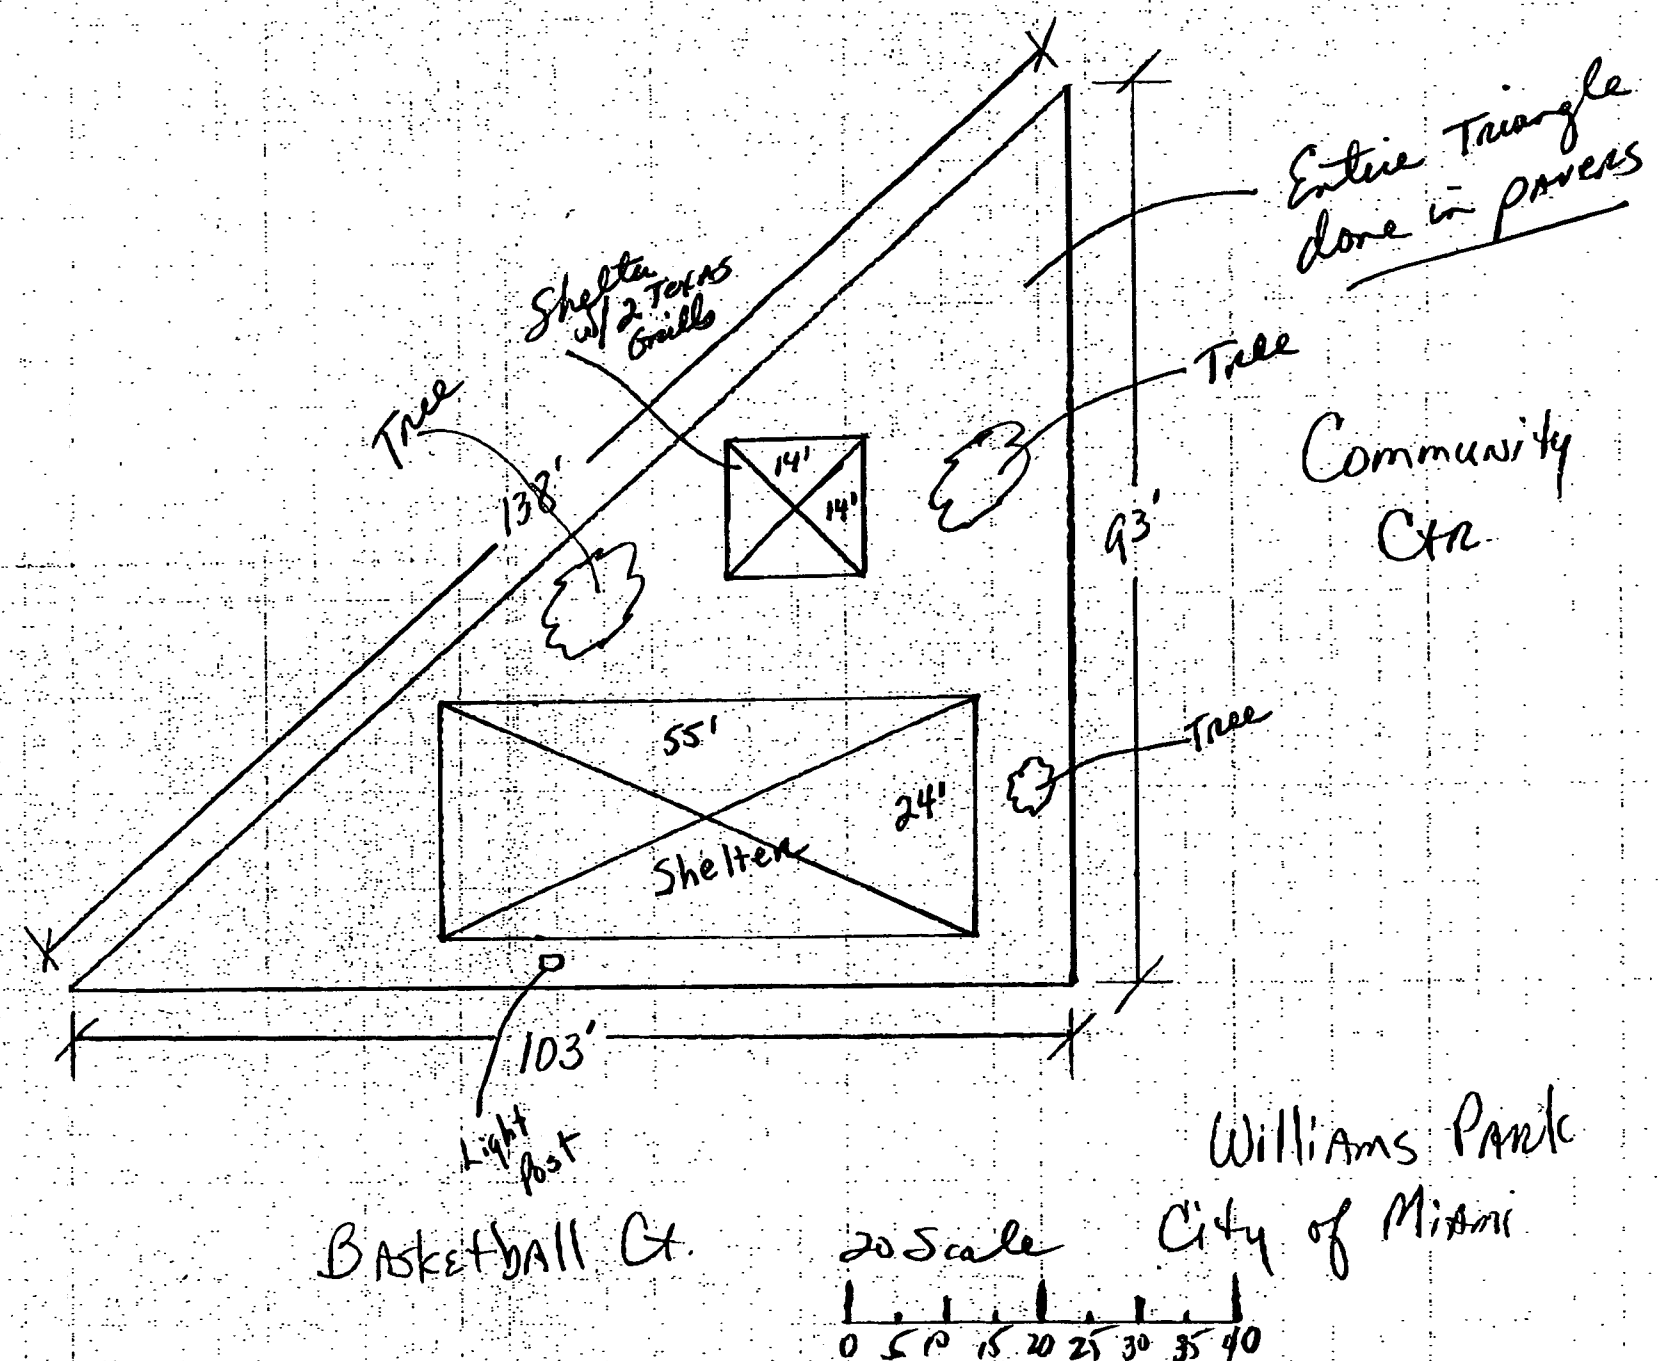 Entire Triangle
done in pavers
Shelter
w/ 2 Texas
Grills
Tree
Tree
138'
14'
14'
93'
Community
Ctr
55'
24'
Shelter
Tree
103'
Light
Post
Williams Park
City of Miami
Basketball Ct.
20 Scale
0 5 10 15 20 25 30 35 40